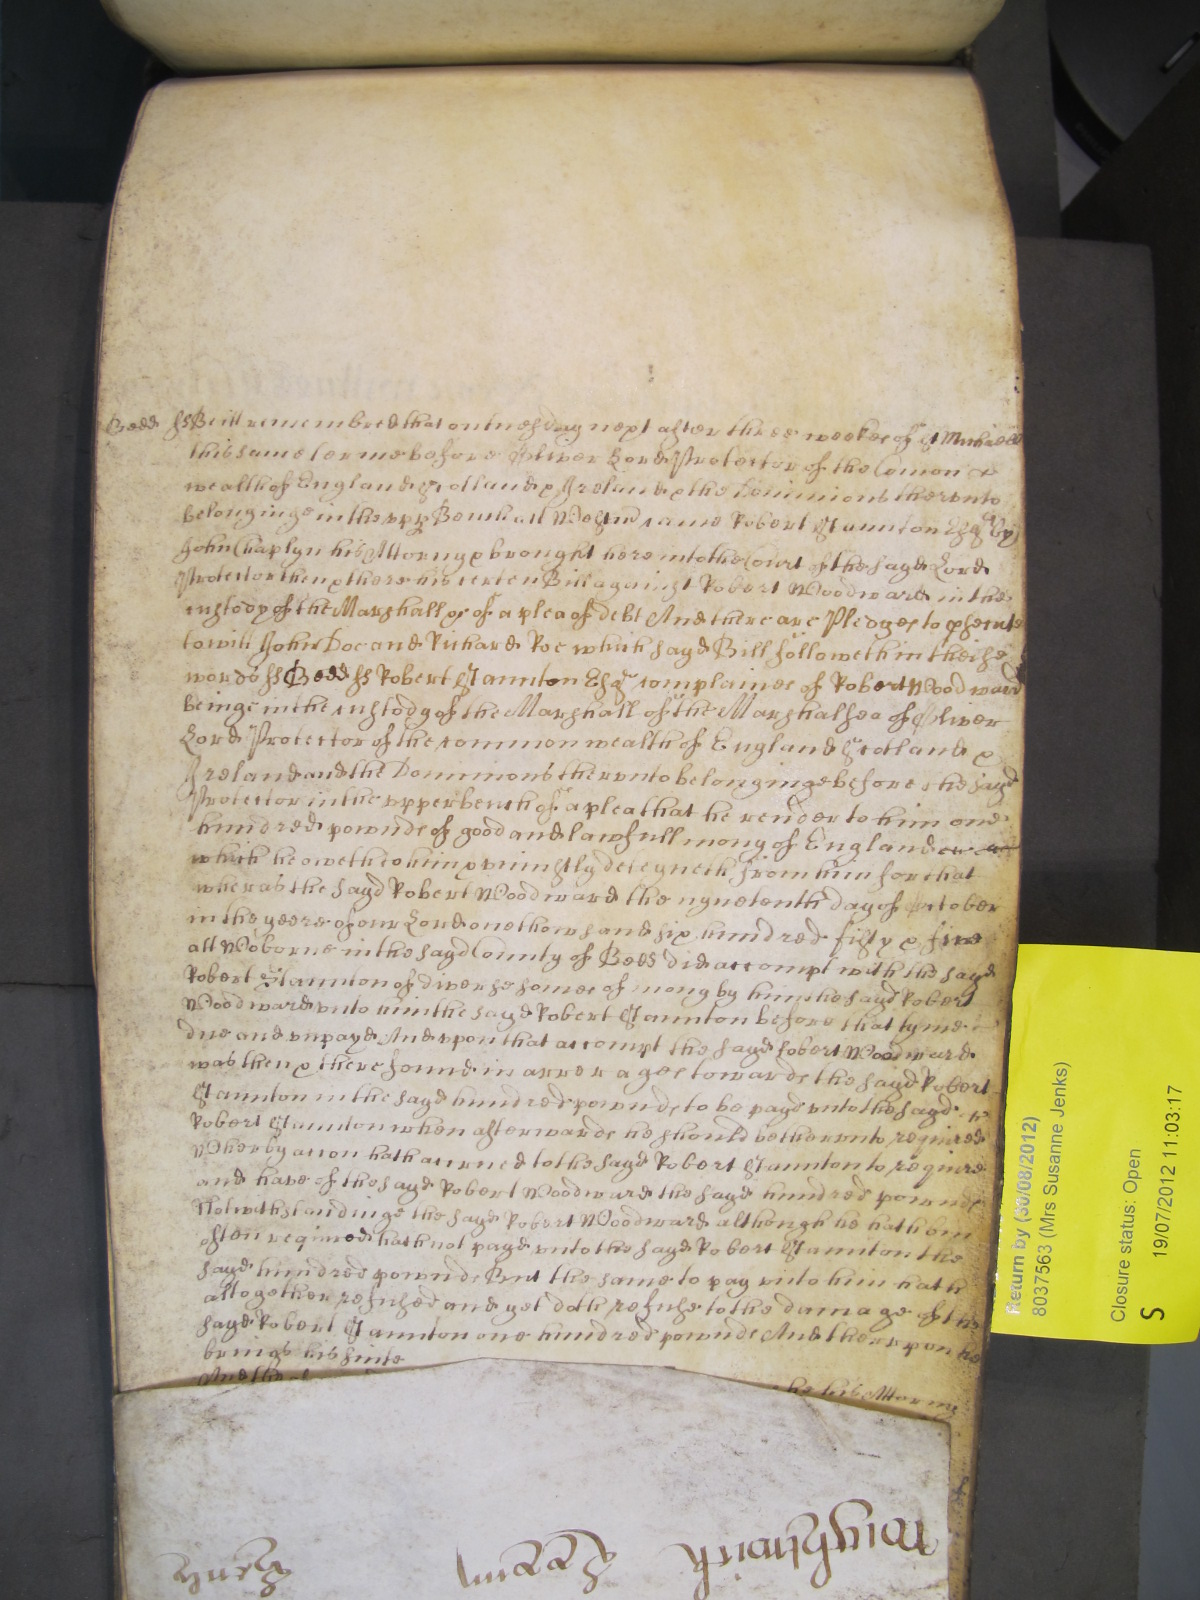 Bedd ss Be itt remembred that on tuesday next after three weekes of St Michaell
this same terme before Oliver Lord Protector of the Comon
wealth of England Scotland & Ireland & the Dominions thervnto
belonginge in the vpper Bench att Westmr came Robert Staunton Esqr by
John Chaplyn his Attorny & brought here into the Court of the sayd Lord
Protector then & there his certen Bill against Robert Woodward in the
custody of the Marshall &c of a plea of debt And there are Pledges to psecute
to witt John Doe and Richard Roe which sayd Bill followeth in theise
words ss Bedd ss Robert Staunton Esqr complaines of Robert Woodward
beinge in the custody of the Marshall of the Marshalsea of Oliver
Lord Protector of the common wealth of England Scotland &
Ireland and the Dominions thervnto belonginge before the sayd
Protector in the vpper bench of a plea that he render to him one
hundred pownds of good and lawfull mony of England
which he oweth to him & vniustly deteyneth from him for that
wheras the sayd Robert Woodward the nynetenth day of October
in the yeere of our Lord one thowsand six hundred fifty & five
att Woborne in the sayd County of Bedd did accompt with the sayd
Robert Staunton of diverse somes of mony by him the sayd Robert
Woodward vnto him the sayd Robert Staunton before that tyme
due and vnpayd And vpon that accompt the sayd Robert Woodward
was then & there found in arrerages towards the sayd Robert
Staunton in the sayd hundred pownds to be payd vnto the sayd
Robert Staunton when afterwards he should be thervnto required
Wherby accon hath accrued to the sayd Robert Staunton to require
and have of the sayd Robert Woodward the sayd hundred pownds
Notwithstandinge the sayd Robert Woodward although he hath bin
often required hath not payd vnto the sayd Robert Staunton the
sayd hundred pownds But the same to pay vnto him hath
altogether refused and yet doth refuse to the damage of the
sayd Robert Staunton one hundred pownds And thervpon he
brings his suite
And the
his Attorny
Return by (30/08/2012)
8037563 (Mrs Susanne Jenks)
Closure status: Open
S 19/07/2012 11:03:17